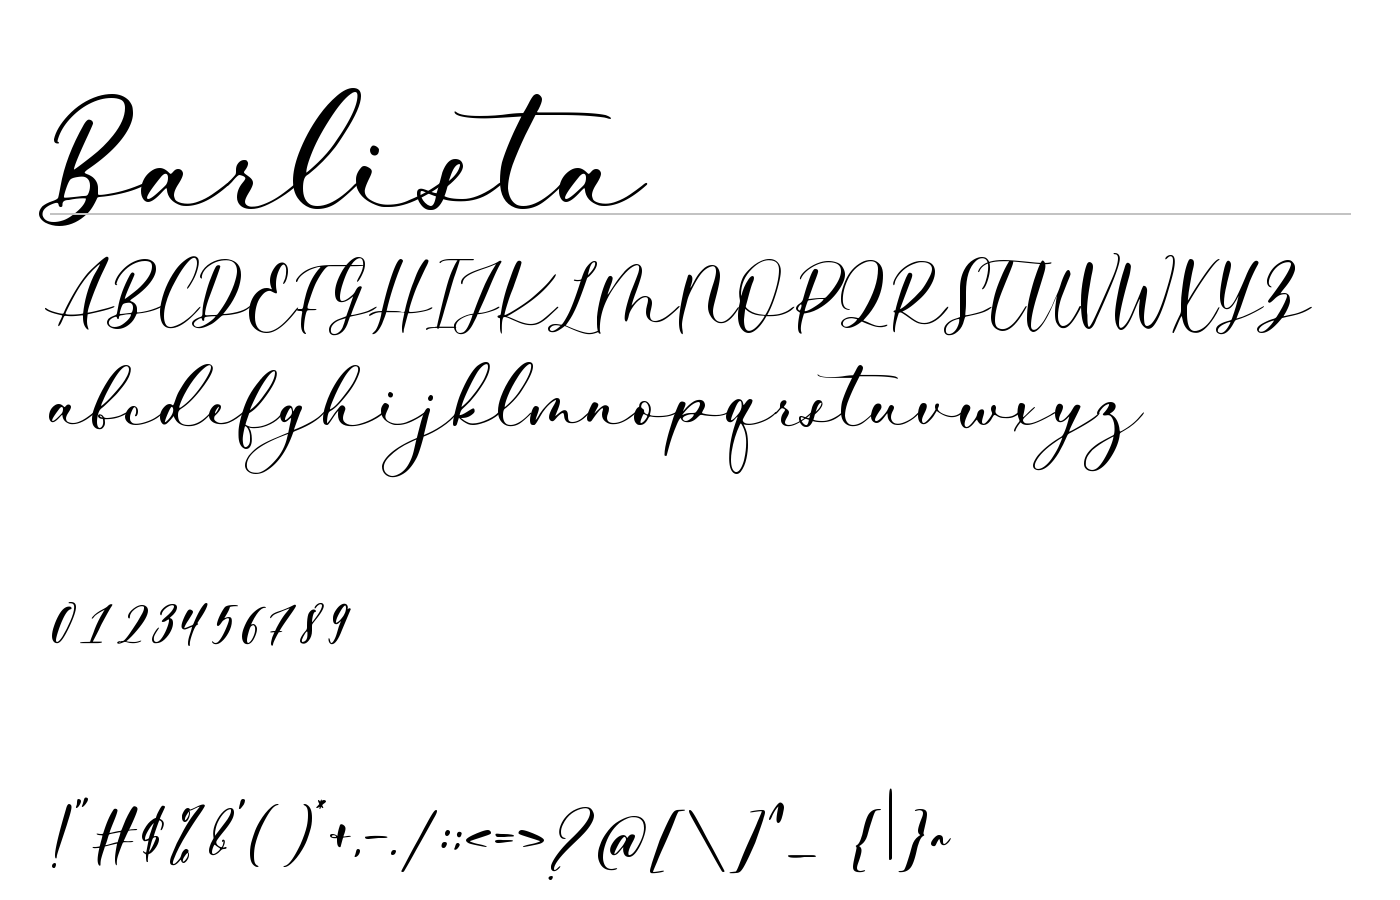 Barlista
ABCDEFGHIJKLMNOPQRSTUVWXYZ
abcdefghijklmnopqrstuvwxyz
0123456789
!"#$%&'()*+,-./:;<=>?@[\]^_{|}~